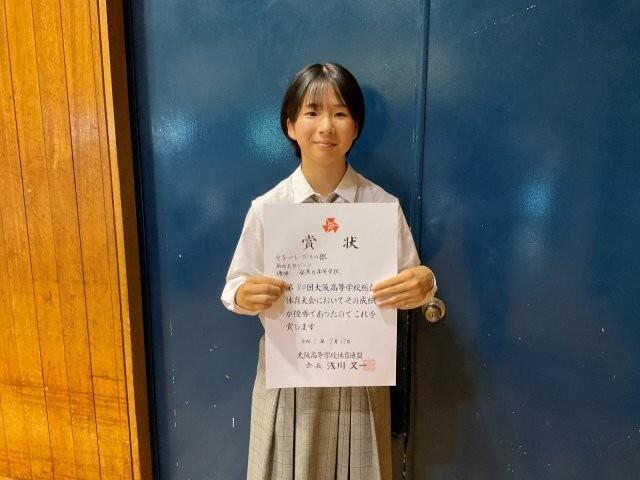 賞状
女子バレーボールの部
優勝 高等学校
第80回大阪高等学校総合
体育大会においてその成績
が優秀であつたのでこれを
賞します
令和7年7月27日
大阪高等学校体育連盟
会長 浅川又一